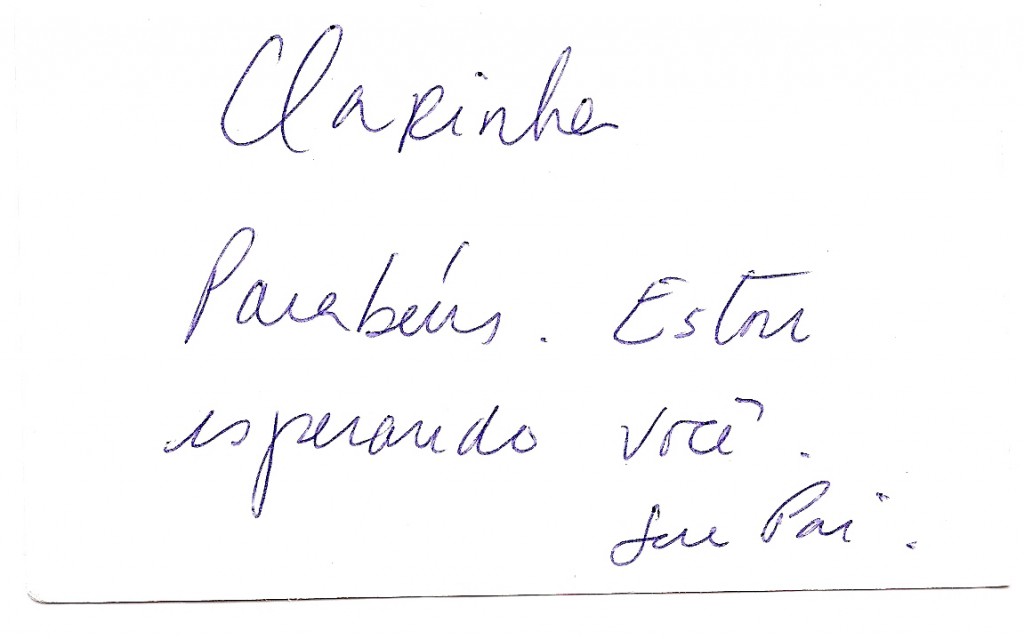 Clarinha
Parabéns. Estou
esperando você.
Seu Pai.